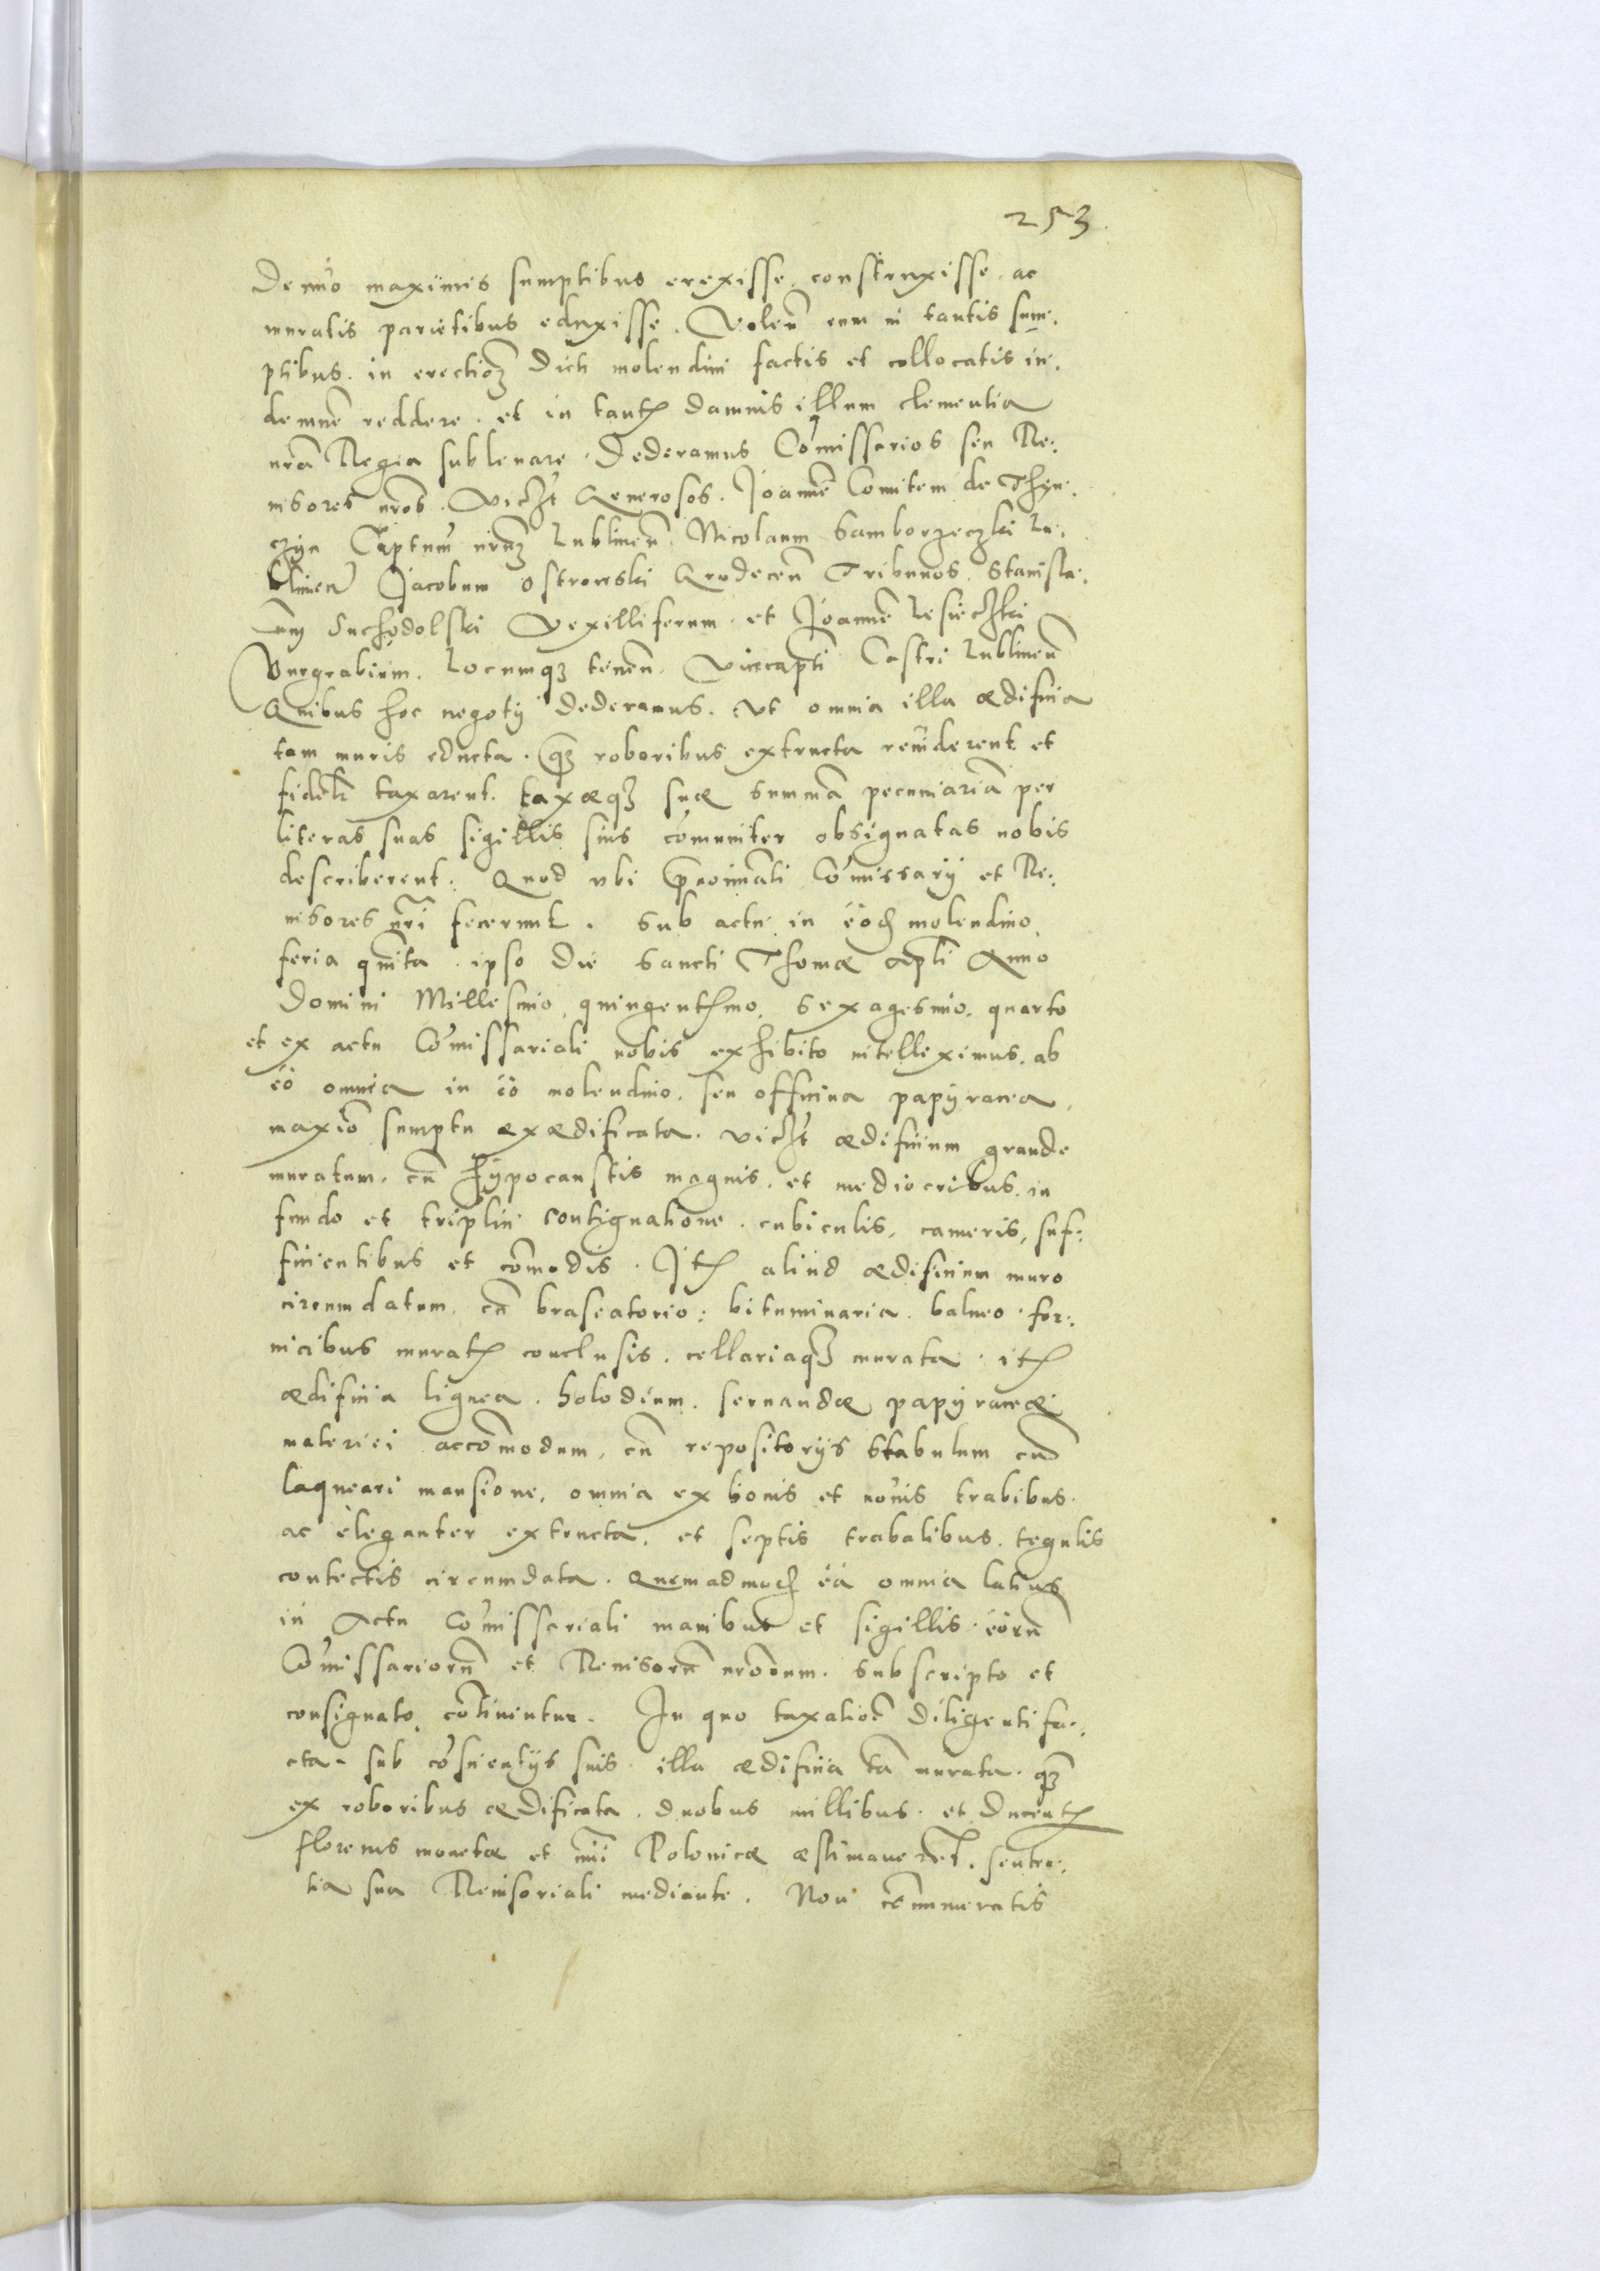 253
Denuo maximis sumptibus erexisse, construxisse, ac
muratis parietibus eduxisse. Volen̄ eum in tantis sum:
ptibus in erectioꝫ dicti molendini factis et collocatis in:
demnē reddere. et in tantꝭ damnis illum clementia
nrā Regia subleuare. Dederamus Com̄issarios seu Re:
uisores nrōs. vicꝫt Generosos. Joannē Comitem de Thyn:
czyn Captum̄ nrūm Lublinen̄ Nicolaum Samborzeczki Lu:
blinen̄ Jacobum Ostrowski Grodecen̄ Tribunos. Stanisla:
um Suchodolski Vexilliferum et Joannē Lesieczki
Burgrabium. Locumqꝫ tenen̄. Vicecaptī Castri Lublinen̄
Quibus hoc negoty dederamus. Vt omnia illa ædificia
tam muris educta. qꝫ roboribus extructa reuiderent et
fidelr̄ taxarent. taxæqꝫ suæ summā pecuniariā per
literas suas sigillis suis com̄uniter obsignatas nobis
describerent. Quod vbi p̄nominati Com̄issarÿ et Re:
uisores nrī fecerunt. Sub actu in eodꝫ molendino
feria quinta. ipso die Sancti Thomæ Apli Anno
Domini Millesimo, quingentꝭmo, Sexagesimo. quarto
et ex actu Com̄issariali nobis exhibito intelleximus. ab
eo omnia in eo molendino. seu officina papÿracea.
maxīo sumptu exædificata. vicꝫt ædificium grande
muratum. cū hÿpocaustis magnis. et mediocribus. in
fundo et triplici contignatione. cubiculis, cameris, suf:
ficientibus et com̄odis. Itꝭ aliud ædificium muro
circumdatum. cū braseatorio: bituminaria. balneo. for:
nicibus muratꝭ conclusis. cellariaqꝫ murata. itꝭ
ædificia lignea. holodium. seruandæ papÿraceæ
materiei accom̄odum, cū repositorÿs Stabulum cum
laqueari mansione, omnia ex bonis et nouis trabibus.
ac eleganter extructa. et septis trabalibus. tegulis
contectis circumdata. Quemadmodꝫ ea omnia latius
in Actu Com̄issariali manibus et sigillis eorū
Com̄issariorū et Reuisorū nrōrum. subscripto et
consignato cōtinentur. In quo taxatiōe diligenti fa:
cta. sub cōscientÿs suis illa ædificia tā murata. qꝫ
ex roboribus ædificata. duobus millibus. et ducentꝭ
florenis monetæ et nūi Polonicæ æstimauerūt. senten:
tia sua Reuisoriali mediante. Non cōnumeratis